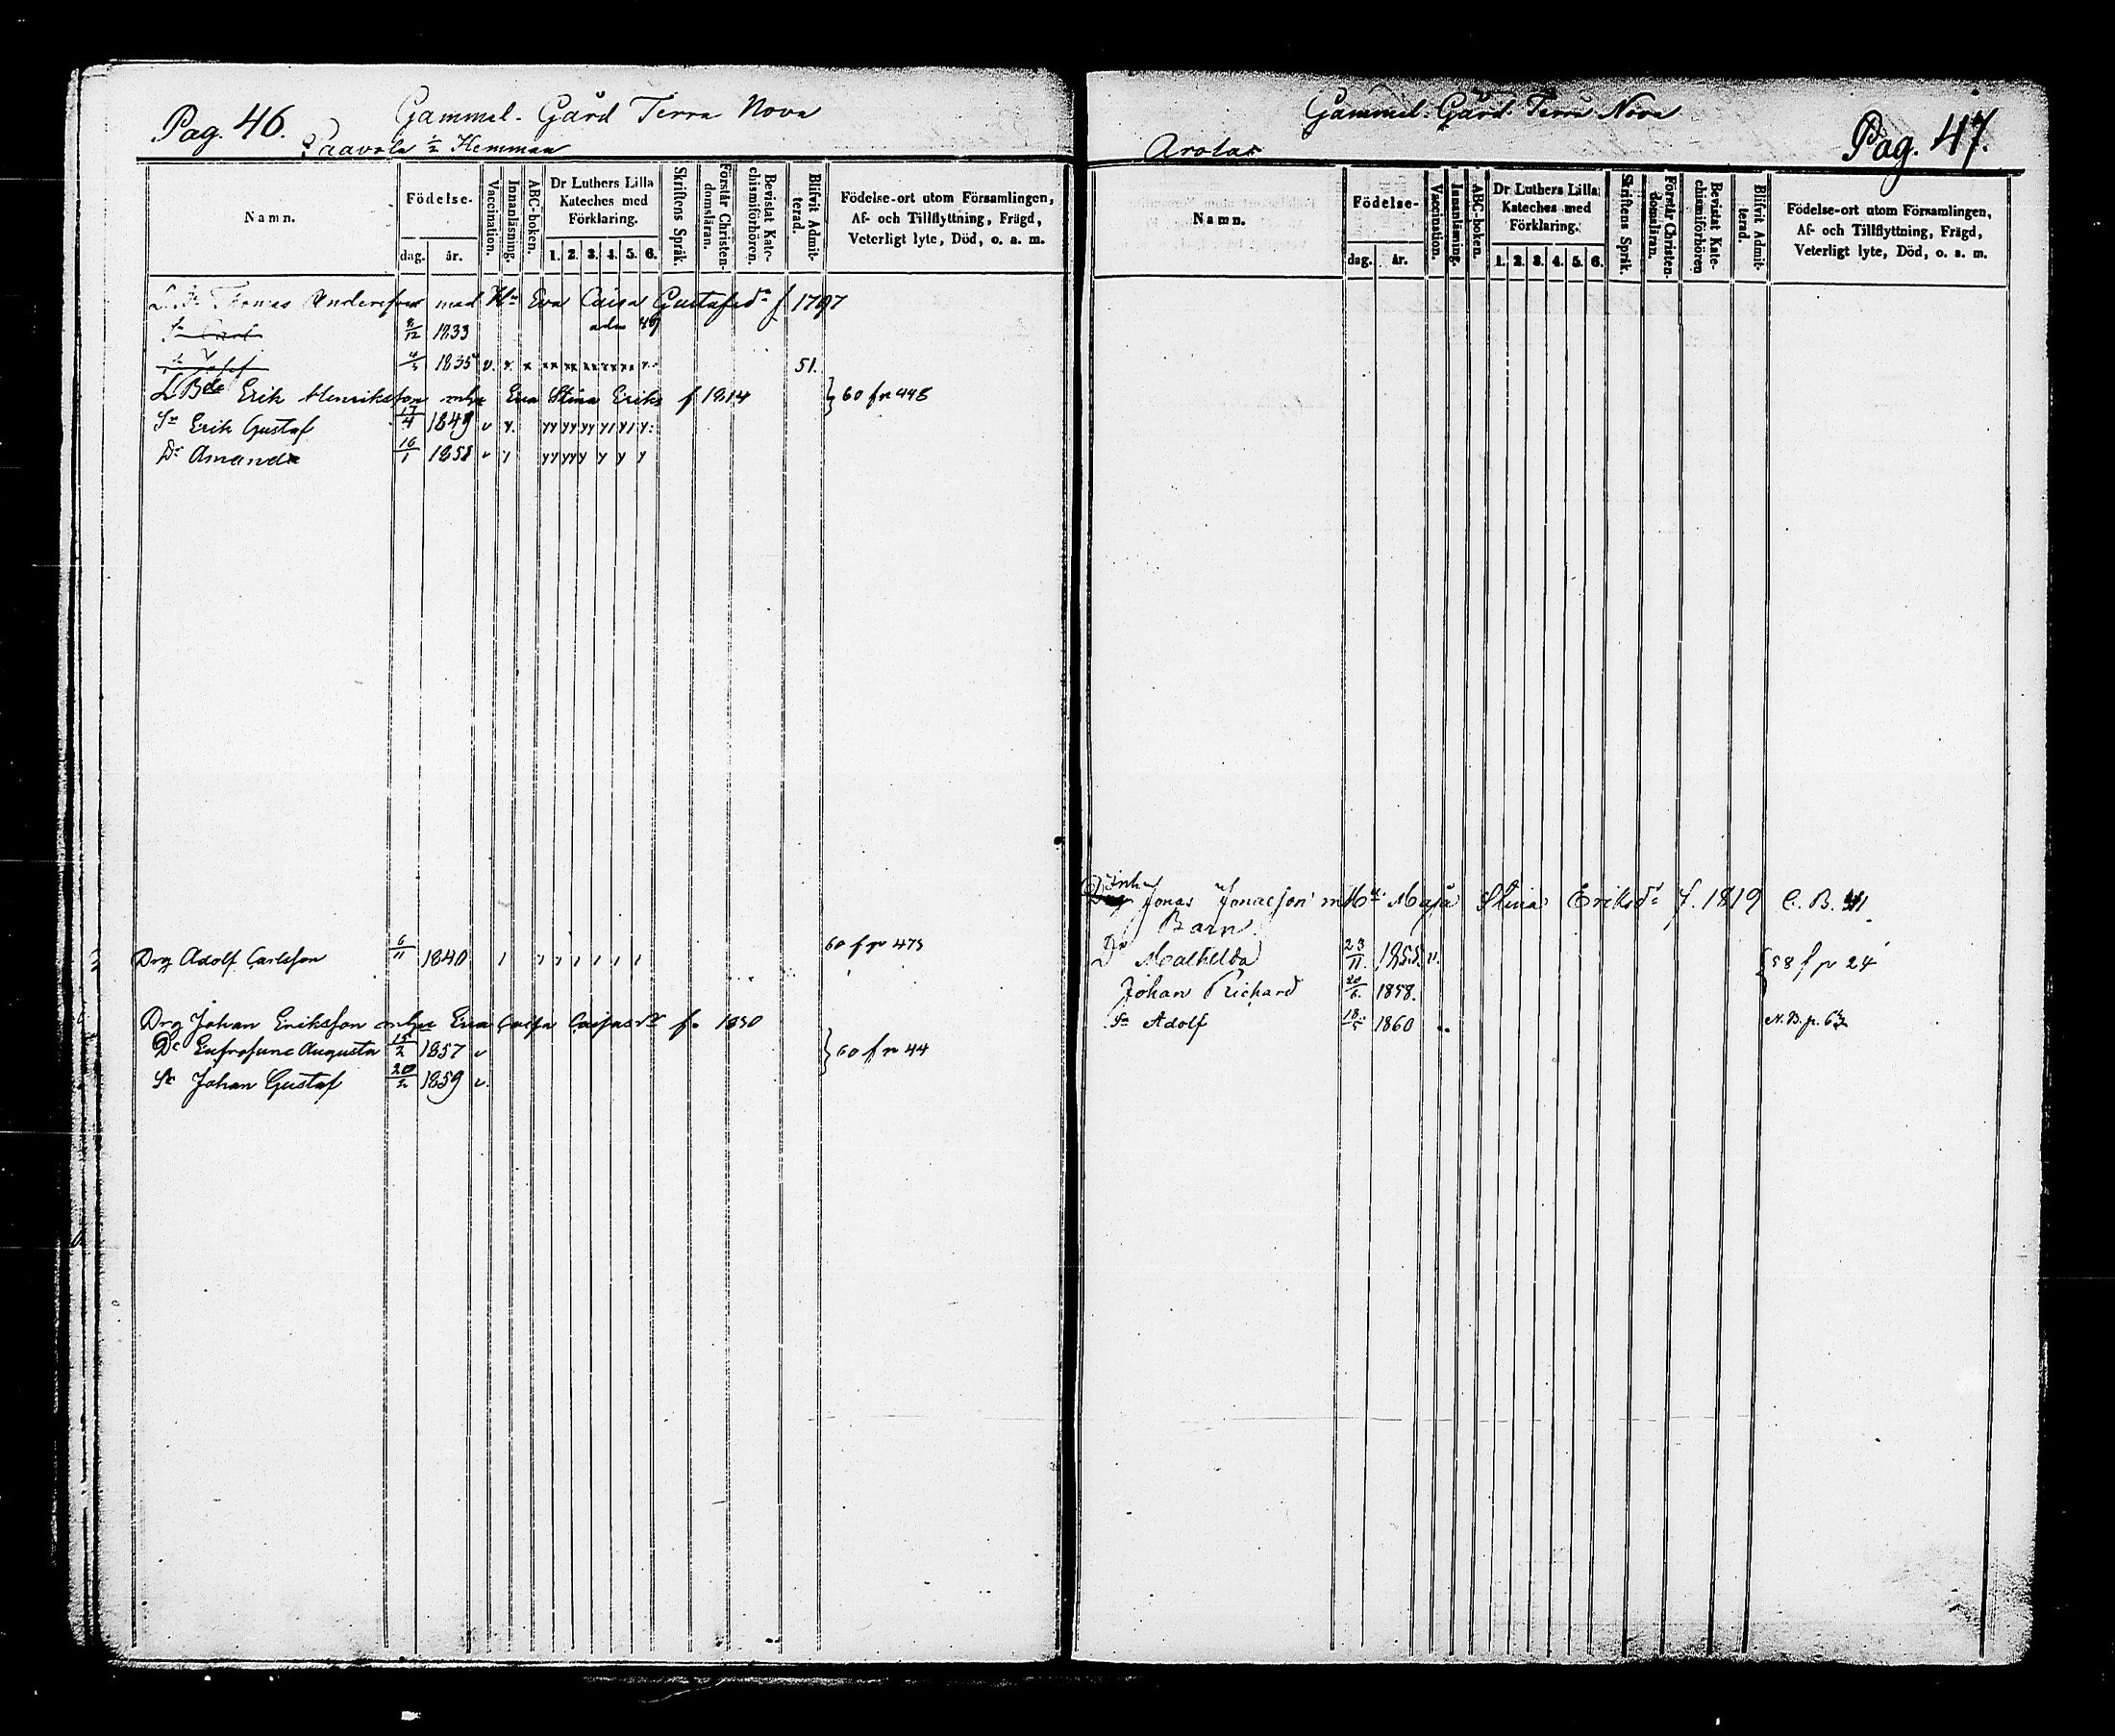 Pag. 46.
Gammel-Gård Terra Nova
Paavola ½ Hemman
Namn.
Födelse-
dag.
år.
Vaccination.
Innanläsning.
ABC-boken.
Dr Luthers Lilla
Kateches med
Förklaring.
1. 2. 3. 4. 5. 6.
Skriftens Språk.
Förstår Christen-
domsläran.
Bevistat Kate-
chismiförhören.
Blifvit Admit-
terad.
Födelse-ort utom Församlingen,
Af- och Tillflyttning, Frägd,
Veterligt lyte, Död, o. a. m.
Thomas Andersson med Eva Caisa Gustafsdr f 1797
Sn 1833 adm 49
1835 v. 51.
Erik Henriksson mhu Eva Stina Eriks f 1814 } 60 fr 448
Sn Erik Gustaf 17/4 1849 v
Dr Amanda 16/1 1851 v
Drg Adolf Carlsson 6/11 1840 60 fr p 473
Drg Johan Eriksson mhu Eva Caisa f. 1830
Dr Eufrosine Augusta 15/2 1857 v } 60 fr 44
Sn Johan Gustaf 20/2 1859 v.
Gammel-Gård Terra Nova
Pag. 47.
Arolar
Namn.
Födelse-
dag.
år.
Vaccination.
Innanläsning.
ABC-boken.
Dr Luthers Lilla
Kateches med
Förklaring.
1. 2. 3. 4. 5. 6.
Skriftens Språk.
Förstår Christen-
domsläran.
Bevistat Kate-
chismiförhören
Blifvit Admit-
terad.
Födelse-ort utom Församlingen,
Af- och Tillflyttning, Frägd,
Veterligt lyte, Död, o. a. m.
inh
Jonas Jonasson m Hu Maja Stina Eriksdr f. 1819 C. B. 41
Barn
Dr Mathilda 23/11. 1855. v. { 58 f p 24
Johan Richard 20/6. 1858.
Sn Adolf 18/5 1860 N. B. p.